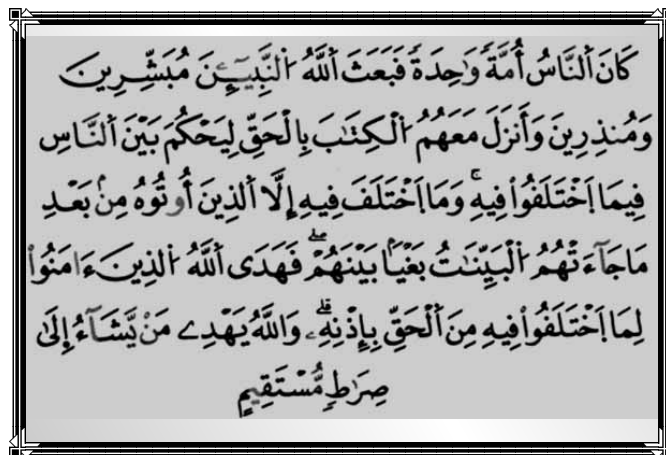 كَانَ اَ۬لنَّاسُ أُمَّةٗ وَٰحِدَةٗ فَبَعَثَ اَ۬للَّهُ اُ۬لنَّبِيٓـِٕۧنَ مُبَشِّرِينَ
وَمُنذِرِينَ وَأَنزَلَ مَعَهُمُ اُ۬لْكِتَٰبَ بِالْحَقِّ لِيَحْكُمَ بَيْنَ اَ۬لنَّاسِ
فِيمَا اَ۪خْتَلَفُواْ فِيهِۚ وَمَا اَ۪خْتَلَفَ فِيهِ إِلَّا اَ۬لذِينَ أُوتُوهُ مِنۢ بَعْدِ
مَا جَآءَتْهُمُ اُ۬لْبَيِّنَٰتُ بَغْيَاۢ بَيْنَهُمْۖ فَهَدَى اَ۬للَّهُ اُ۬لذِينَ ءَامَنُواْ
لِمَا اَ۪خْتَلَفُواْ فِيهِ مِنَ اَ۬لْحَقِّ بِإِذْنِهِۦۗ وَاللَّهُ يَهْدِے مَنْ يَّشَآءُ إِلَىٰ
صِرَٰطٖ مُّسْتَقِيمٍ